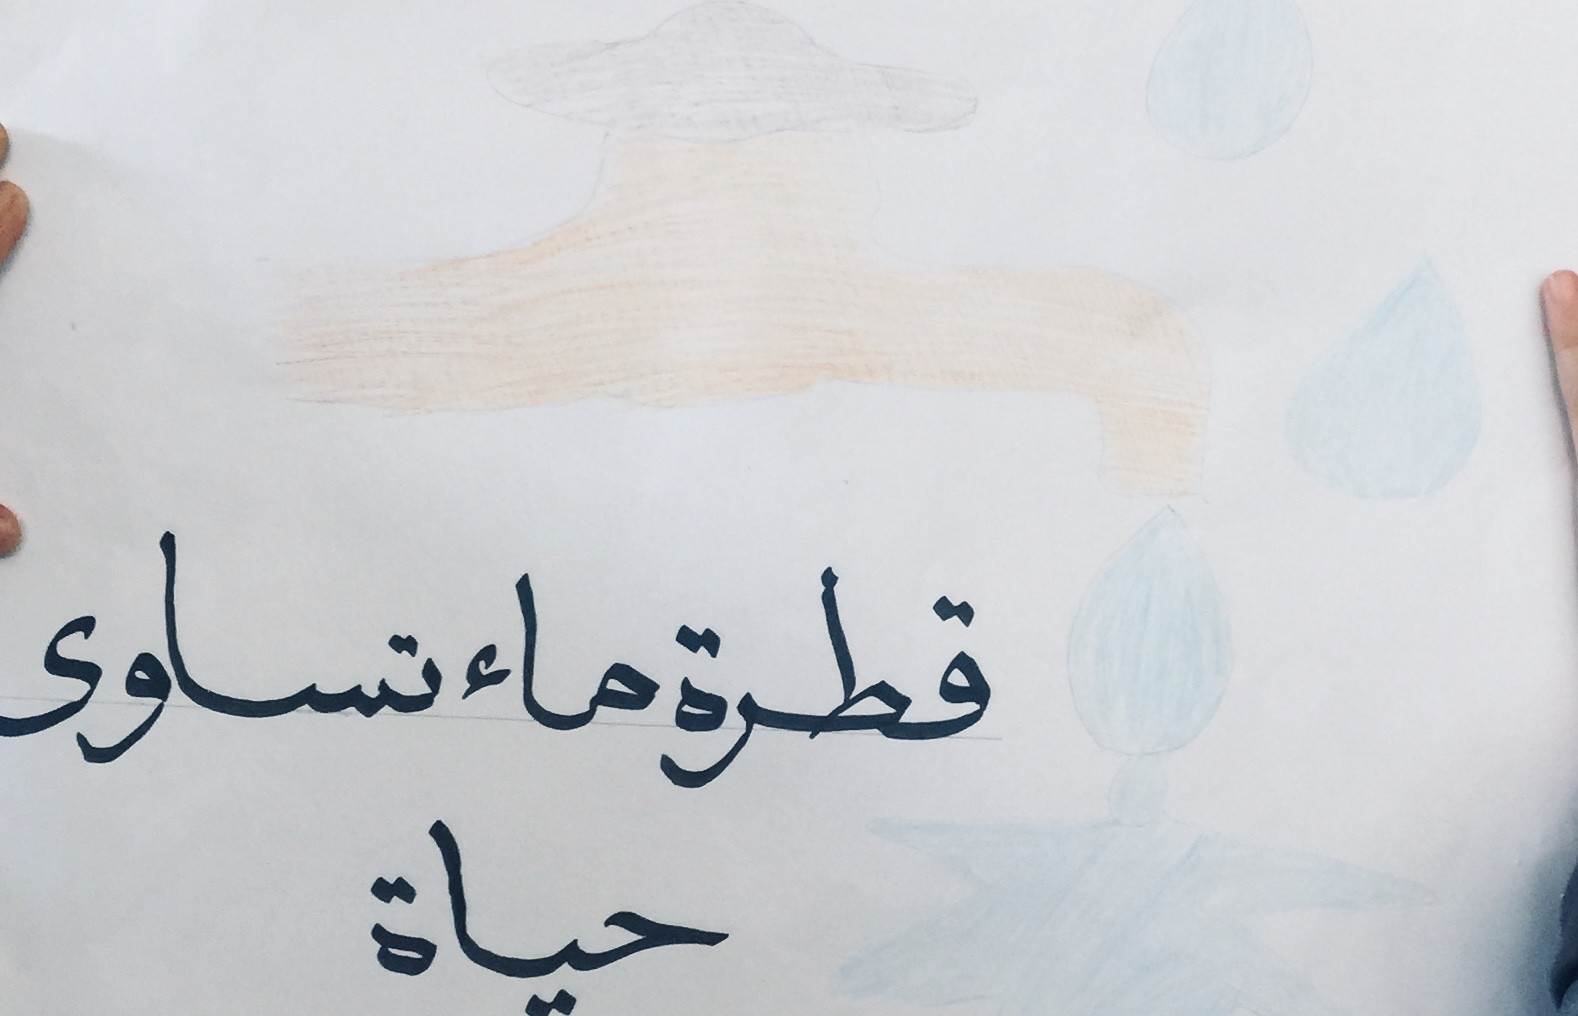 قطرة ماء تساوى
حياة